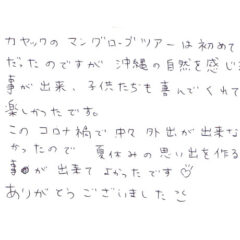 カヤックの マングローブツアー は 初めて
だったのですが 沖縄の自然を感じ
事が出来、子供たちも喜んでくれて
楽しかったです。
この コロナ禍で中々 外出が出来な
かったので 夏休みの思い出を作る
事が出来て よかったです♡
ありがとうございました